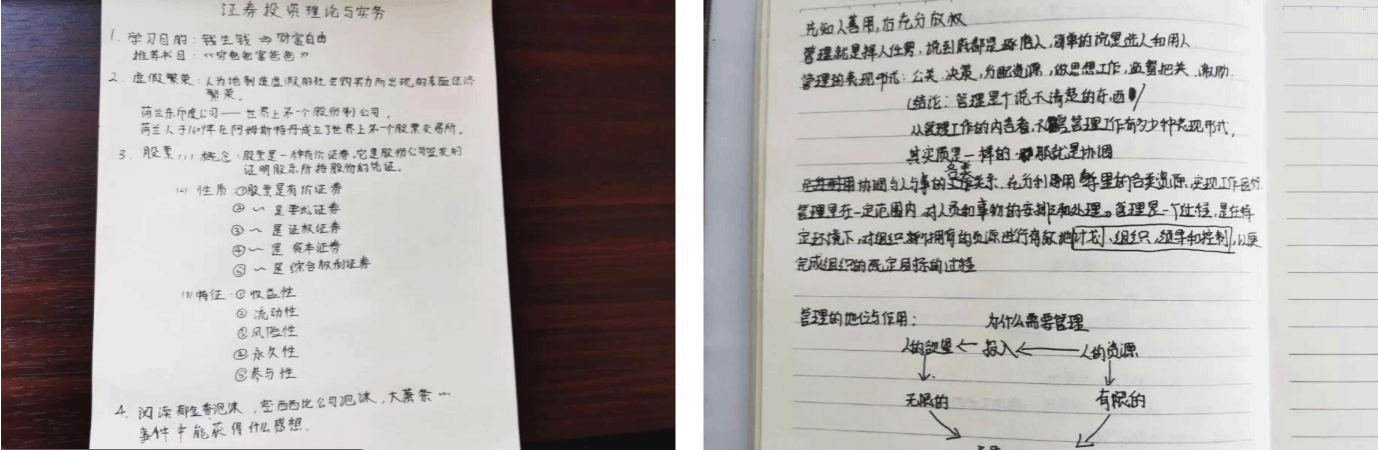 证券投资理论与实务
1. 学习目的：钱生钱 ⇒ 财富自由
推荐书目：《穷爸爸富爸爸》
2. 虚假繁荣：人为地制造虚假的社会购买力而出现的表面经济
繁荣。
荷兰东印度公司——世界上第一个股份制公司，
荷兰人于1609年在阿姆斯特丹成立了世界上第一个股票交易所。
3. 股票 (1) 概念：股票是一种有价证券，它是股份公司签发的
证明股东所持股份的凭证。
(2) 性质：①股票是有价证券
②〜是要式证券
③〜是证权证券
④〜是资本证券
⑤〜是综合权利证券
(3) 特征：①收益性
②流动性
③风险性
④永久性
⑤参与性
4. 阅读郁金香泡沫，密西西比公司泡沫，大萧条…
事件中能获得什么感想.
先知人善用，后充分放权
管理就是择人任势，说到底都是琢磨人，简单的说是些人和用人
管理的表现形式：公关、决策，分配资源，做思想工作，监督把关、激励.
(结论：管理是个说不清楚的东西)
从管理工作的内容看，不管管理工作有多少种表现形式，
其实质是一样的 那就是协调
协调与人与事的各类关系，充分利用手里的各类资源，实现工作目标
管理是在一定范围内，对人员和事物的安排和处理。管理是一个过程，是在特
定环境下，对组织所拥有的资源进行有效地计划、组织、领导和控制，以便
完成组织的既定目标的过程
管理的地位与作用： 为什么需要管理
人的欲望 ← 投入 ← 人的资源
无限的 有限的